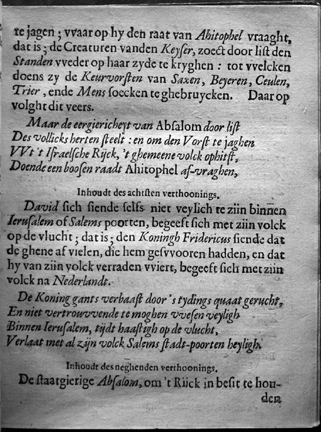 te jagen; vvaar op hy den raat van Ahitophel vraaght,
dat is; de Creaturen vanden Keyser, zoect door list den
Standen vveder op haar zyde te kryghen: tot vvelcken
doens zy de Keurvorsten van Saxen, Beyeren, Ceulen,
Trier, ende Mens soecken te ghebruycken. Daar op
volght dit veers.
Maar de eergiericheyt van Absalom door list
Des vollicks herten steelt: en om den Vorst te jaghen
VVt 't Israelsche Rijck, 't ghemeene volck ophitst,
Doende een boosen raadt Ahitophel af-vraghen,
Inhoudt des achtsten verthoonings.
David sich siende selfs niet veylich te zijn binnen
Ierusalem of Salems poorten, begeeft sich met zijn volck
op de vlucht; dat is; den Koningh Fridericus siende dat
de ghene af vielen, die hem gesvvooren hadden, en dat
hy van zijn volck verraden vviert, begeeft sich met zijn
volck na Nederlandt.
De Koning gants verbaast door 's tydings quaat gerucht,
En niet vertrouvvende te moghen vvesen veyligh
Binnen Ierusalem, tijdt haastigh op de vlucht,
Verlaat met al zijn volck Salems stadt-poorten heyligh.
Inhoudt des neghenden verthoonings.
De staatgierige Absalom, om 't Rijck in besit te hou-
den